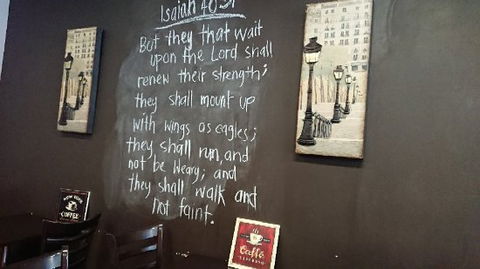 Isaiah 40:31
But they that wait
upon the Lord shall
renew their strength;
they shall mount up
with wings as eagles;
they shall run, and
not be Weary; and
they shall walk and
not faint.
COFFEE
Caffe